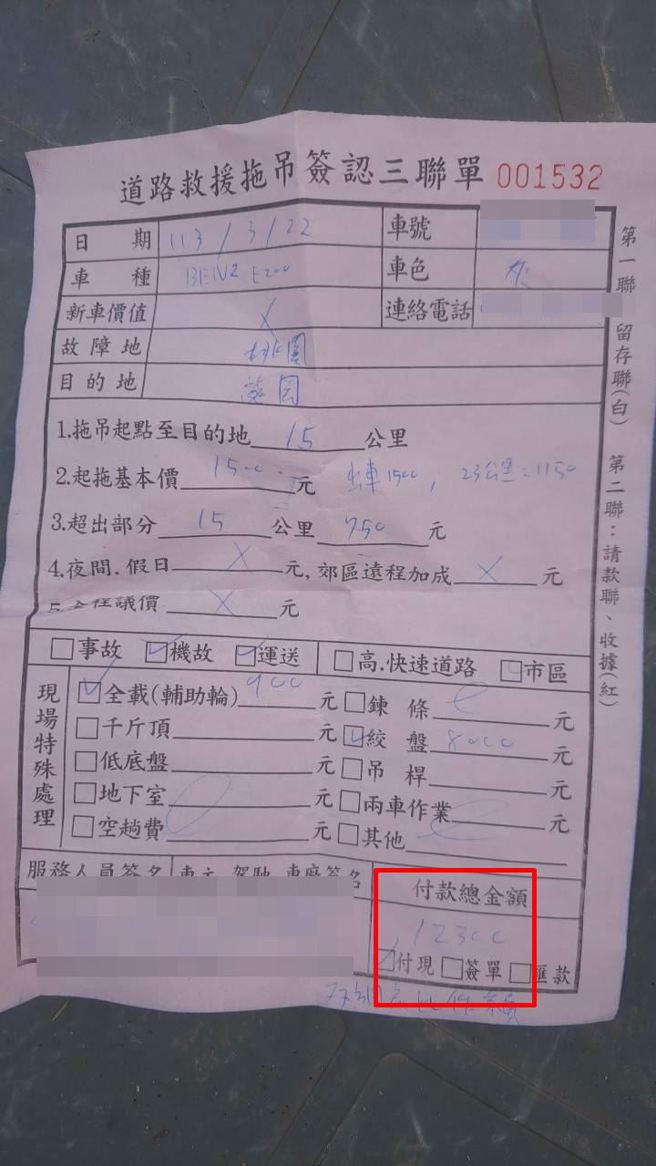 道路救援拖吊簽認三聯單 001532
日期 113/3/22 車號
車種 BENZ E200 車色 灰
新車價值 X 連絡電話
故障地 桃園
目的地
1.拖吊起點至目的地 15 公里
2.起拖基本價 1500 元 1500, 23公里=1150
3.超出部分 15 公里 750 元
4.夜間.假日 X 元,郊區遠程加成 X 元
議價 X 元
事故 機故 運送 高.快速道路 市區
現場特殊處理
全載(輔助輪) 900 元 鍊條 元
千斤頂 元 絞盤 8000 元
低底盤 元 吊桿 元
地下室 元 兩車作業 元
空趟費 元 其他
服務人員簽名 車主 駕駛 車廠簽名 付款總金額
12300
付現 簽單 匯款
第一聯 留存聯(白) 第二聯:請款聯、收據(紅)